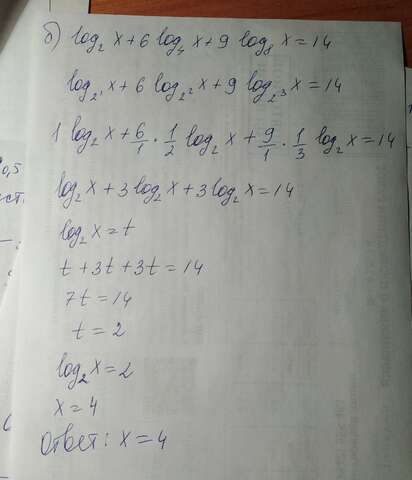 б) log₂ x + 6 log₄ x + 9 log₈ x = 14
log₂¹ x + 6 log₂² x + 9 log₂³ x = 14
1 log₂ x + 6/1 · 1/2 log₂ x + 9/1 · 1/3 log₂ x = 14
log₂ x + 3 log₂ x + 3 log₂ x = 14
log₂ x = t
t + 3t + 3t = 14
7t = 14
t = 2
log₂ x = 2
x = 4
Ответ: x = 4
0,5